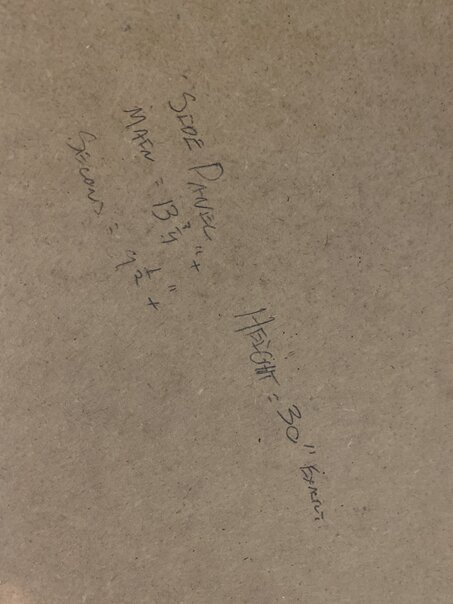 "SIDE PANEL
MAIN = 13 3/4" +
SECOND = 9 1/2" +
HEIGHT = 30" EXACT.